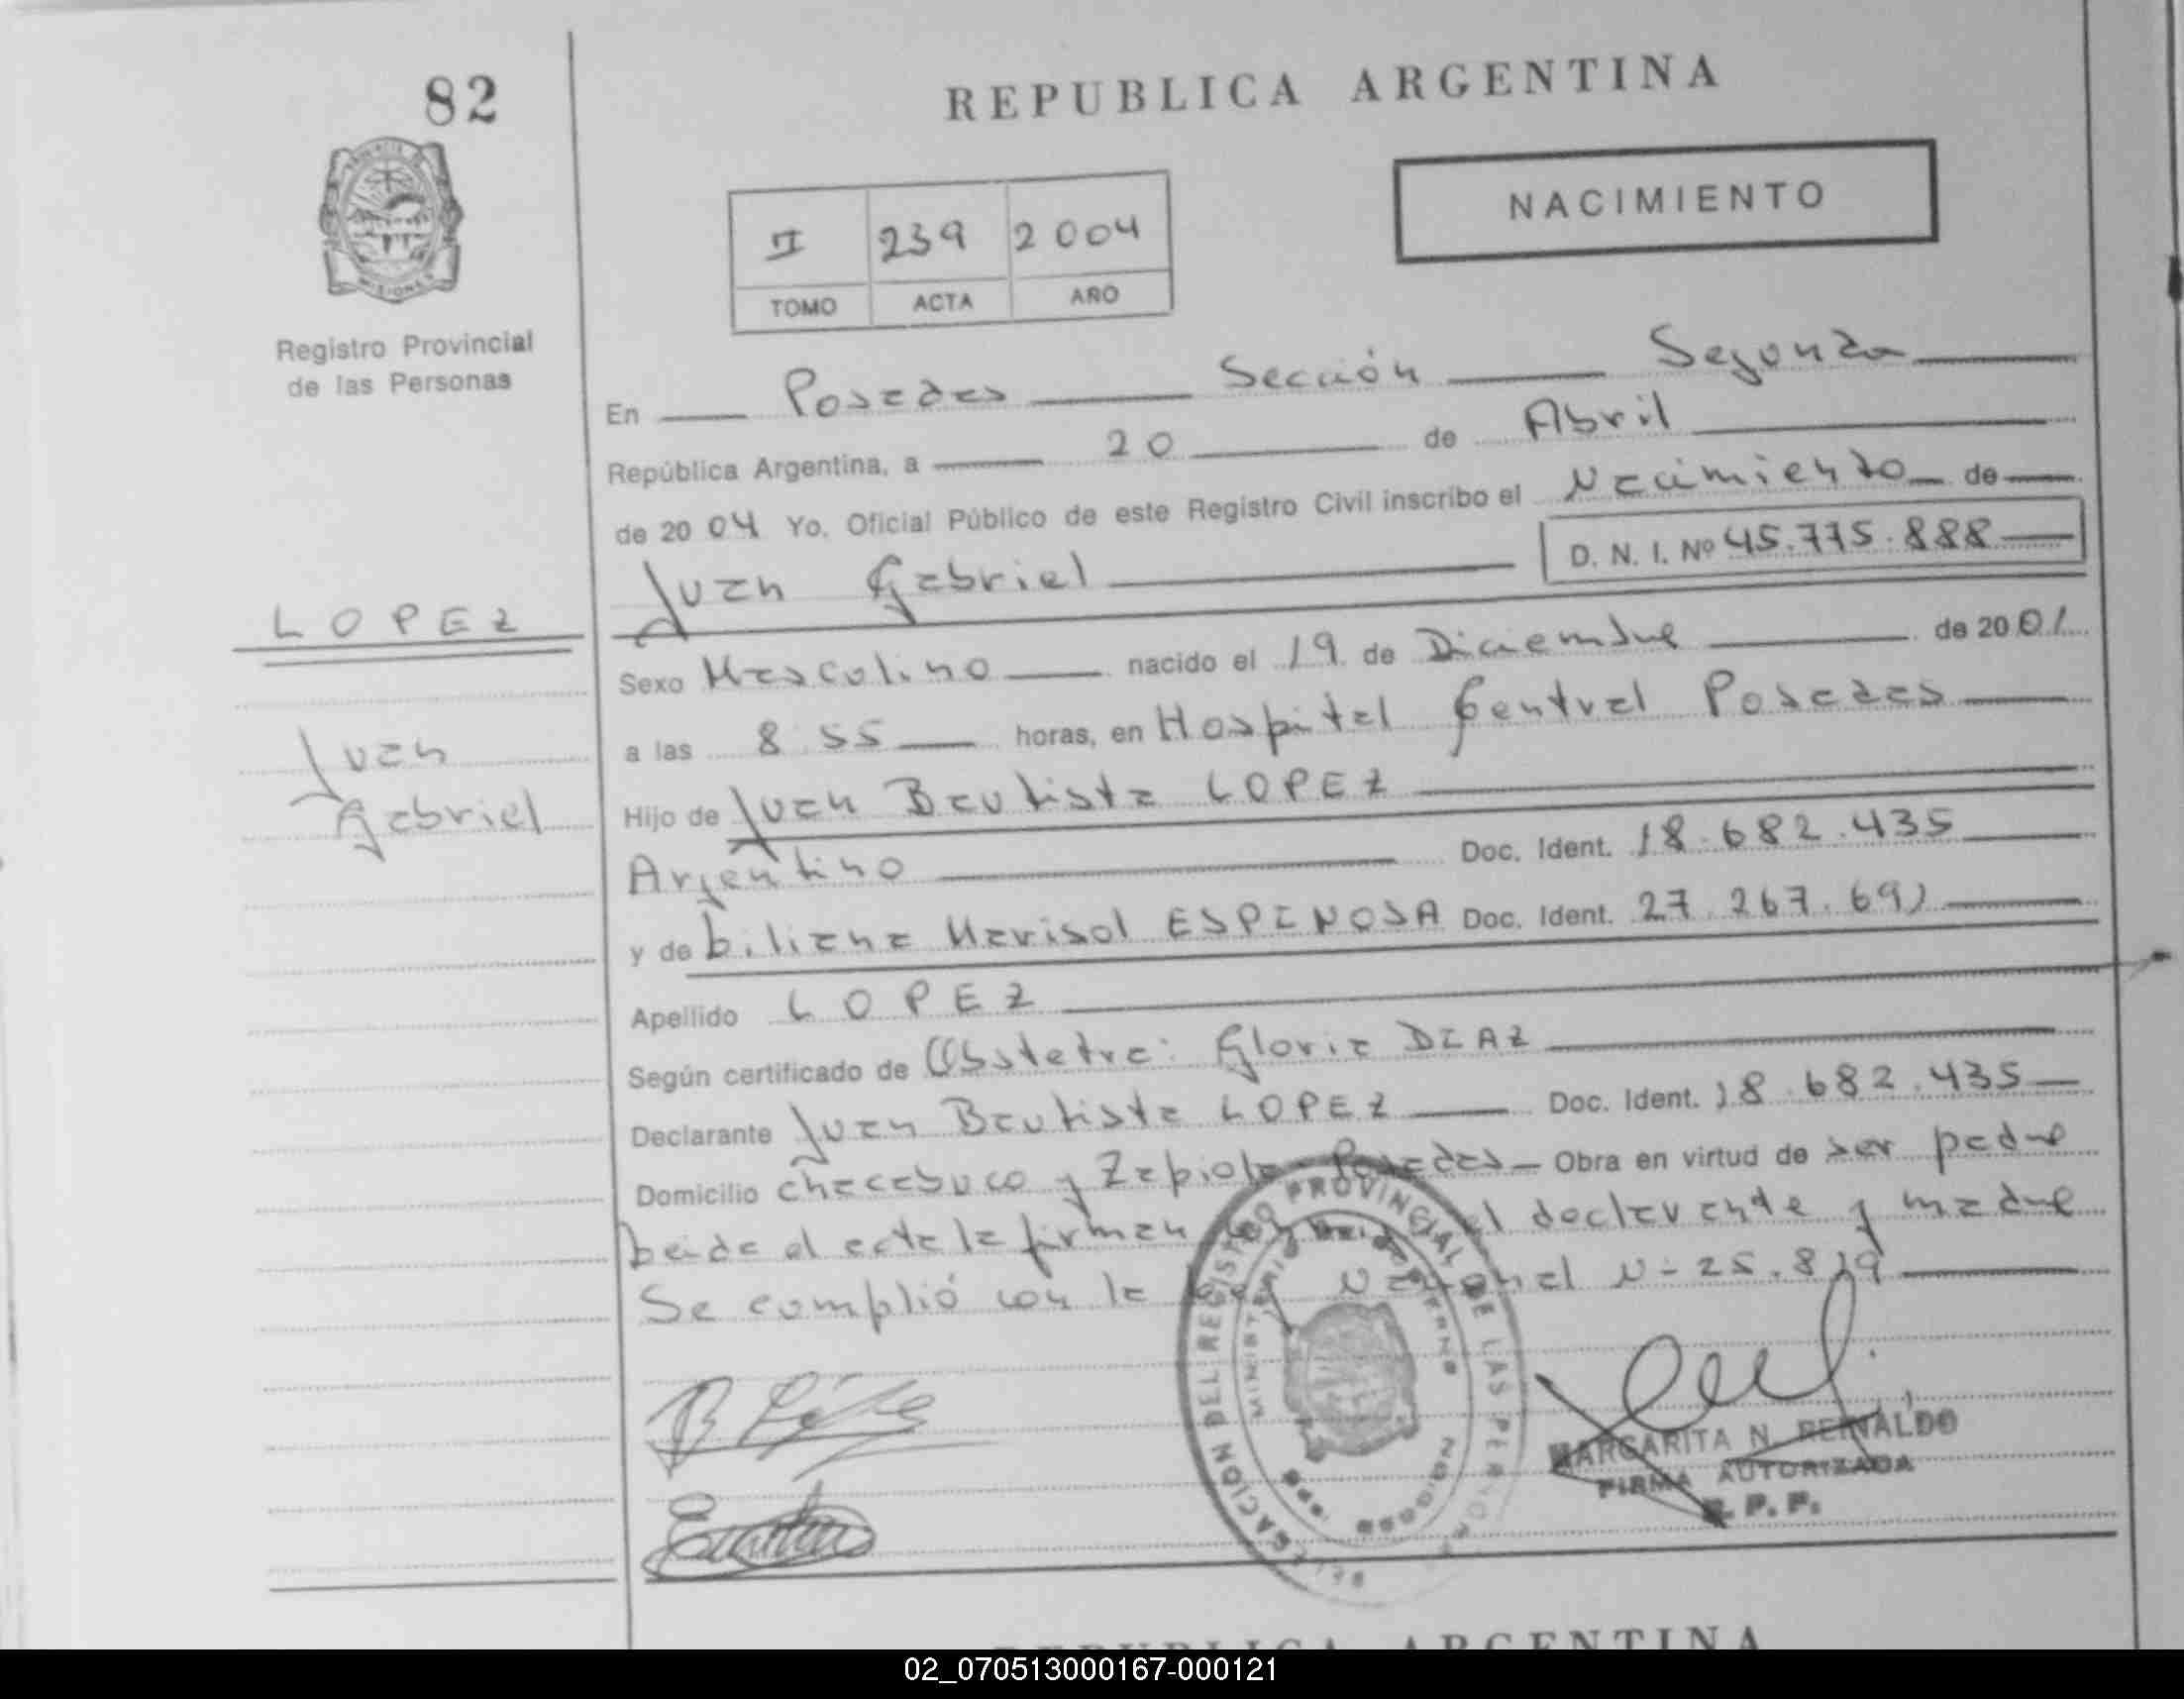 82
REPUBLICA ARGENTINA
NACIMIENTO
II 239 2004
TOMO ACTA AÑO
Registro Provincial
de las Personas
En Posadas Sección Segunda
República Argentina, a 20 de Abril
de 2004 Yo, Oficial Público de este Registro Civil inscribo el Nacimiento de
Juan Gabriel D. N. I. Nº 45.775.888
LOPEZ
Juan
Gabriel
Sexo Masculino nacido el 19 de Diciembre de 2001
a las 8 55 horas, en Hospital Central Posadas
Hijo de Juan Bautista LOPEZ
Argentino Doc. Ident. 18.682.435
y de Liliana Marisol ESPINOSA Doc. Ident. 27.267.691
Apellido LOPEZ
Según certificado de Obstetra: Gloria DIAZ
Declarante Juan Bautista LOPEZ Doc. Ident. 18.682.435
Domicilio Chacabuco y Zapiola Posadas Obra en virtud de ser padre
Leida el acta la firman el declarante y madre
Se cumplió con la Ley Nacional N- 25.819
DELEGACION DEL REGISTRO PROVINCIAL DE LAS PERSONAS
MINISTERIO DE GOBIERNO
MARGARITA N. REINALDO
FIRMA AUTORIZADA
R. P. P.
REPUBLICA ARGENTINA
02_070513000167-000121